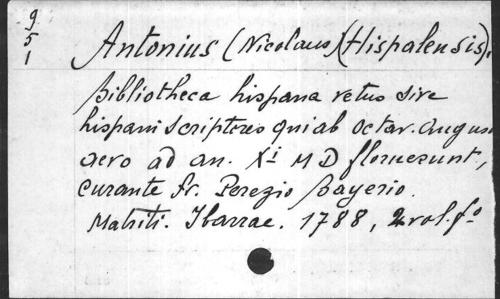 9
5
1
Antonius (Nicolaus) (Hispalensis).
Bibliotheca hispana vetus sive
hispani scriptores qui ab Octav. Augus
aevo ad an. Xi MD floruerunt,
curante Fr. Perezio Bayerio.
Matriti. Ibarrae. 1788, 2 vol. fº